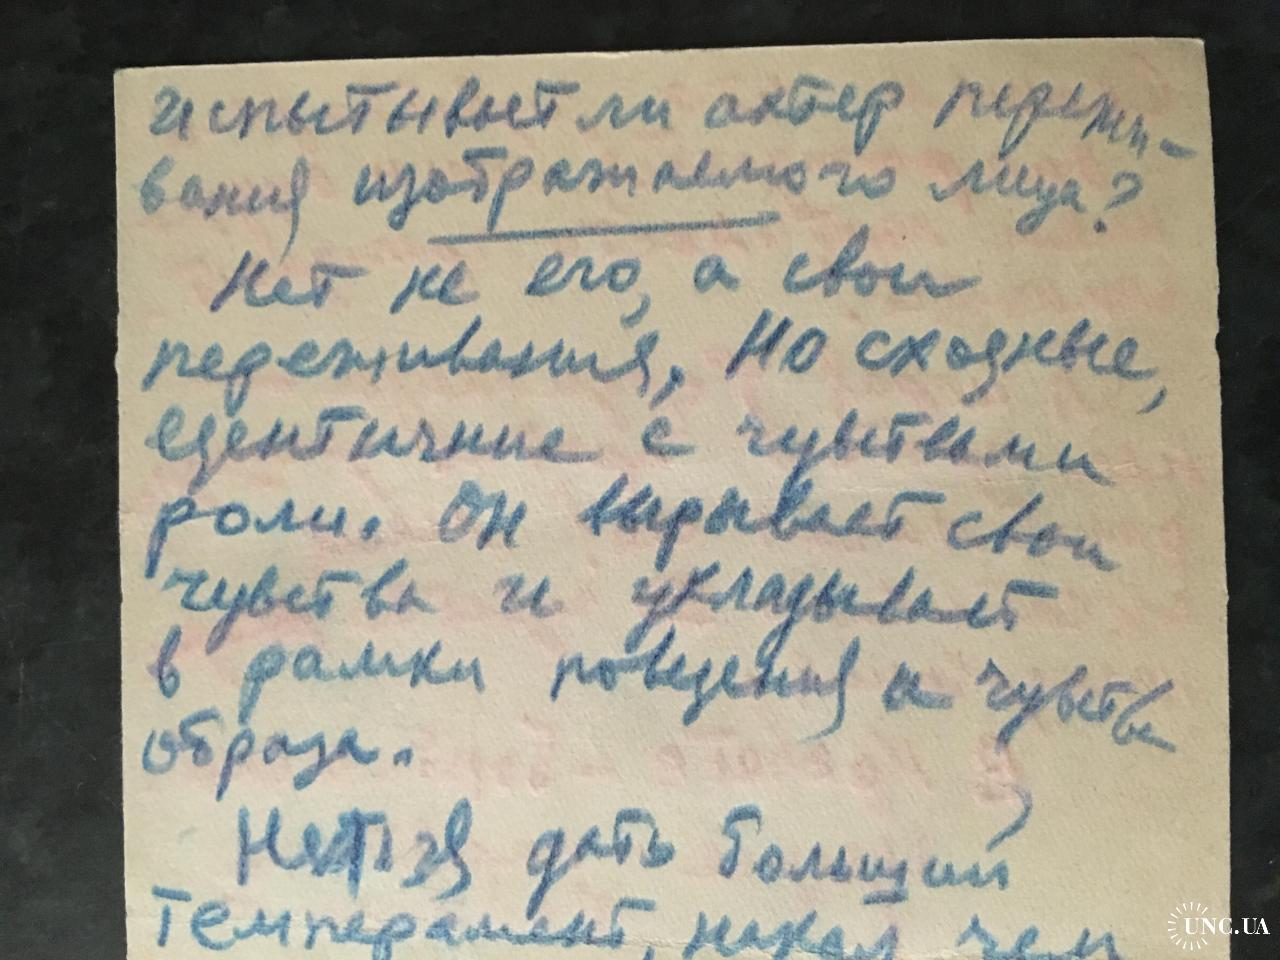 испытывает ли актер пережи-
вания изображаемого лица?
Нет не его, а свои
переживания. Но сходные,
едентичние с чувствами
роли. Он вырывает свои
чувства и укладывает
в рамки поведения и чувства
образа.
Нельзя дать больший
темперамент, накал чем
UNC.UA